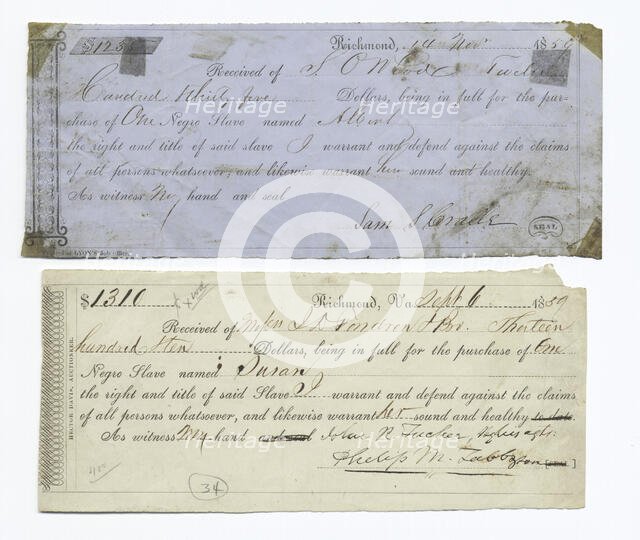 $123
Richmond, 14 Nov 1859
Received of S. O. Wood Twelve
Hundred thirty five Dollars, being in full for the pur-
chase of One Negro Slave named Albert
the right and title of said slave I warrant and defend against the claims
of all persons whatsoever, and likewise warrant him sound and healthy.
As witness My hand and seal
Sam S.
SEAL
LYON'S
heritage-images
Heritage
Images
$1310
Richmond, Va. Sept 6 1859
Received of Thirteen
hundred & ten Dollars, being in full for the purchase of One
Negro Slave named Susan
the right and title of said Slave I warrant and defend against the claims
of all persons whatsoever, and likewise warrant her sound and healthy
As witness My hand John R.
Philip M. Tabb & Son
HECTOR DAVIS, AUCTIONEER.
400
34